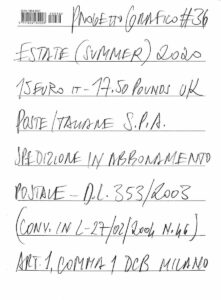 PROGETTO GRAFICO #36
ESTATE (SUMMER) 2020
15 EURO IT - 17.50 POUNDS UK
POSTE ITALIANE S.P.A.
SPEDIZIONE IN ABBONAMENTO
POSTALE - D.L. 353/2003
(CONV. IN L - 27/02/2004 N. 46)
ART. 1, COMMA 1 DCB MILANO